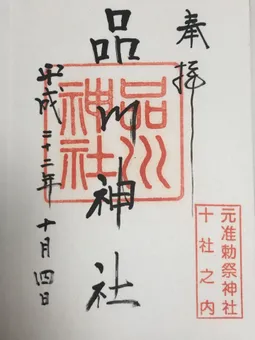 奉拝
品川神社
品川神社
平成二十二年十月四日
元准勅祭神社
十社之内